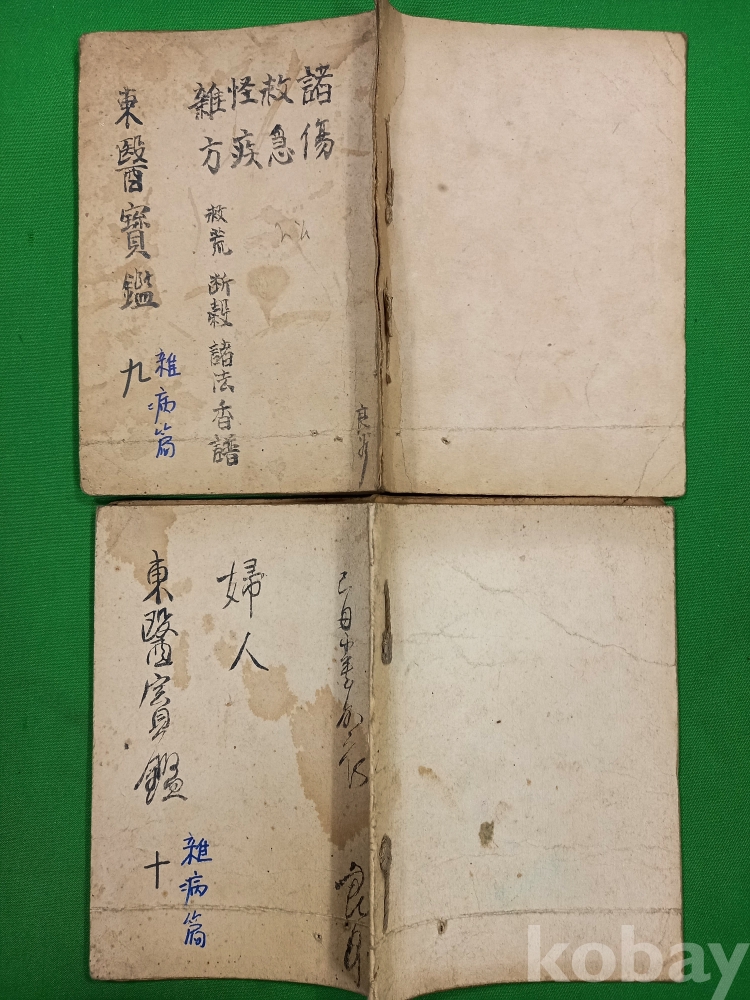 諸傷
救急
怪疾
雜方
救荒 断穀 諸法 香譜
東醫寶鑑 九
雜病篇
婦人
東醫寶鑑 十
雜病篇
kobay